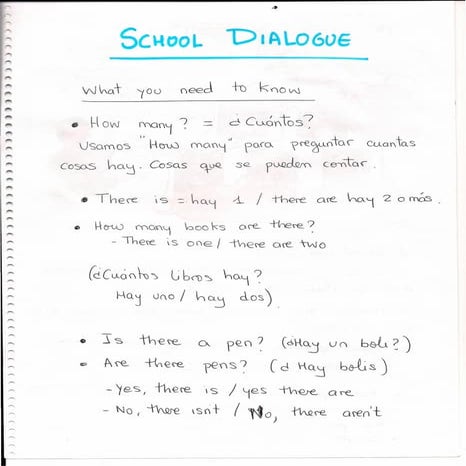 SCHOOL DIALOGUE
What you need to know
• How many? = ¿Cuántos?
Usamos "How many" para preguntar cuantas
cosas hay. Cosas que se pueden contar.
• There is = hay 1 / there are hay 2 o más.
• How many books are there?
- There is one / there are two
(¿Cuántos libros hay?
Hay uno / hay dos)
• Is there a pen? (¿Hay un boli?)
• Are there pens? (¿Hay bolis)
- Yes, there is / yes there are
- No, there isnt / No, there aren't